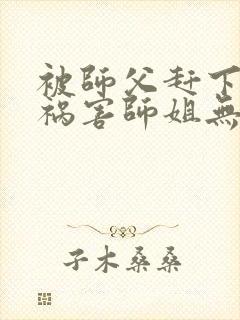 被師父赶下
祸害師姐無
子木桑桑